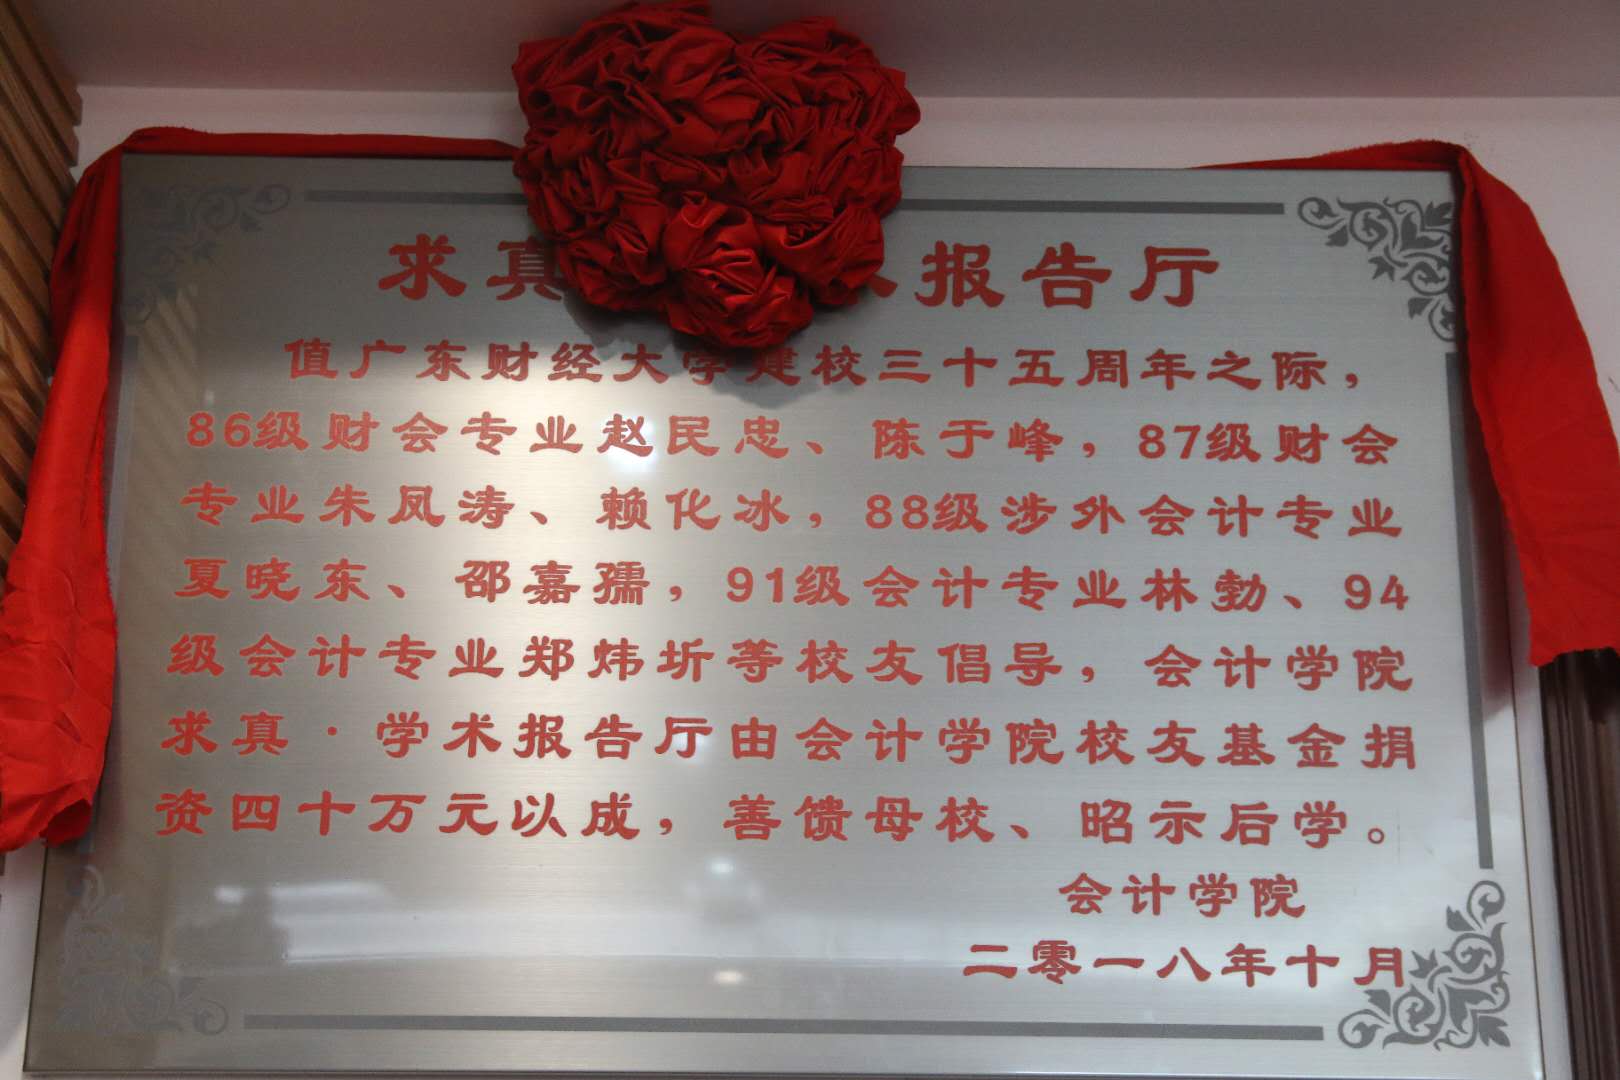 求真 报告厅
值广东财经大学建校三十五周年之际，
86级财会专业赵民忠、陈于峰，87级财会
专业朱凤涛、赖化冰，88级涉外会计专业
夏晓东、邵嘉孺，91级会计专业林勃、94
级会计专业郑炜圻等校友倡导，会计学院
求真·学术报告厅由会计学院校友基金捐
资四十万元以成，善馈母校、昭示后学。
会计学院
二零一八年十月